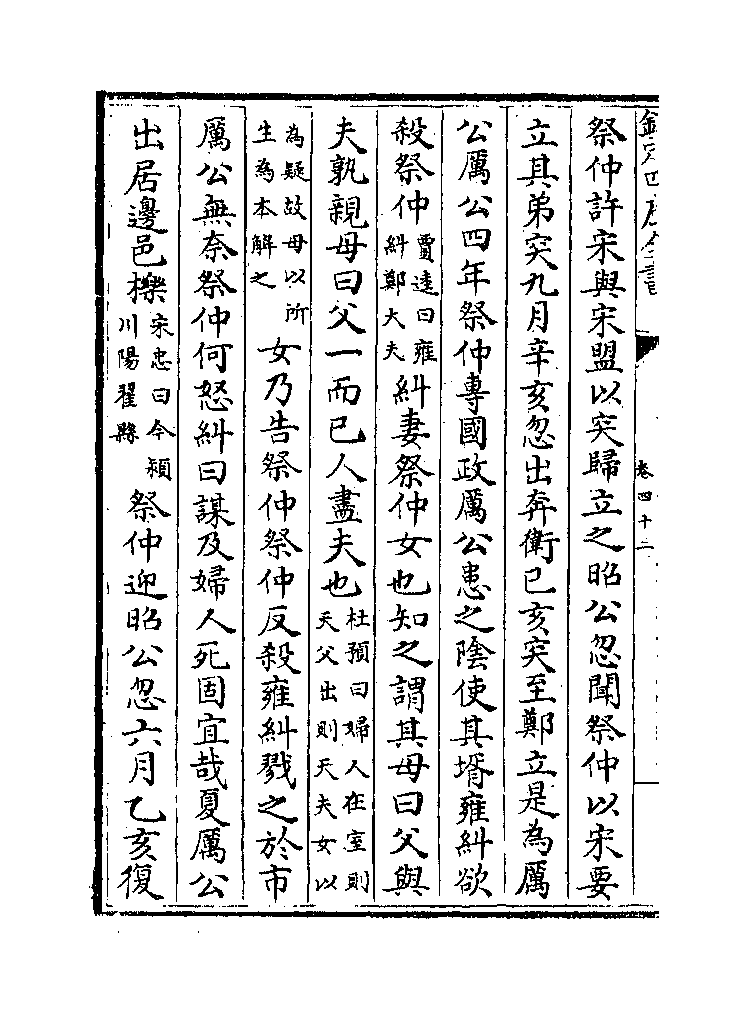 欽定四庫全書
卷四十二
祭仲許宋與宋盟以突歸立之昭公忽聞祭仲以宋要
立其弟突九月辛亥忽出奔衛己亥突至鄭立是為厲
公厲公四年祭仲專國政厲公患之陰使其壻雍糾欲
殺祭仲賈逵曰雍糾鄭大夫糾妻祭仲女也知之謂其母曰父與
夫孰親母曰父一而已人盡夫也杜預曰婦人在室則天父出則天夫女以
為疑故母以所生為本解之女乃告祭仲祭仲反殺雍糾戮之於市
厲公無奈祭仲何怒糾曰謀及婦人死固宜哉夏厲公
出居邊邑櫟宋忠曰今潁川陽翟縣祭仲迎昭公忽六月乙亥復